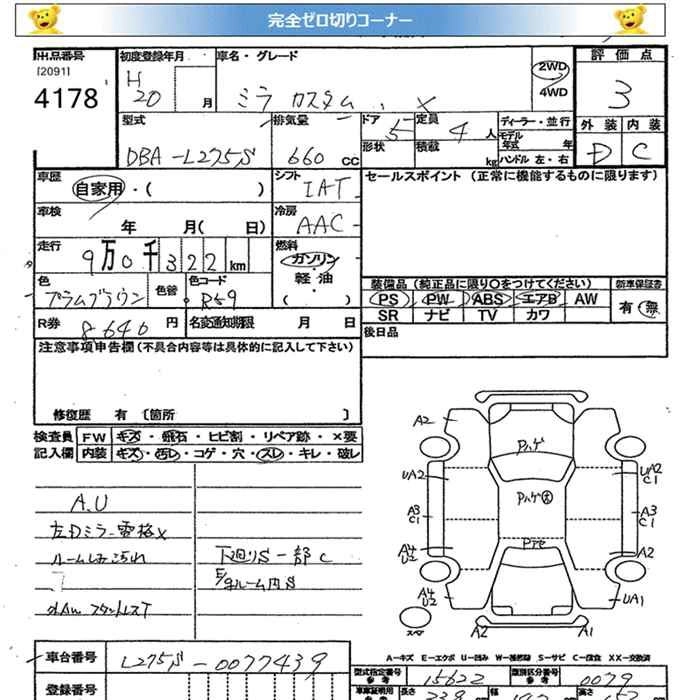 完全ゼロ切りコーナー
出品番号
[2091]
4178
初度登録年月
H
20
月
車名・グレード
ミラ カスタム X
2WD
4WD
評価点
3
外装 内装
D C
型式
DBA-L275S
排気量
660 cc
ドア
5
形状
定員
4 人
積載
kg
ディーラー・並行
モデル
年式 年
ハンドル 左・右
車歴
自家用・( )
シフト
IAT
車検
年 月( 日)
冷房
AAC
走行
9万0千322km
燃料
ガソリン
軽油
( )
色
プラムブラウン
色替
色コード
R59
R券 8,640 円
名変通知期限 月 日
セールスポイント(正常に機能するものに限ります)
装備品(純正品に限り○をつけてください)
PS PW ABS エアB AW
SR ナビ TV カワ
新車保証書
有・無
後日品
注意事項申告欄(不具合内容等は具体的に記入して下さい)
修復歴 有 〔箇所 〕
検査員
記入欄
FW キズ・飛石・ヒビ割・リペア跡・×要
内装 キズ・汚レ・コゲ・穴・スレ・キレ・破レ
A.U
左ドミラー電格×
ルームしみ汚れ
下廻りS一部C
E/gルーム内S
A2
Pハゲ
UA2
C1
Pハゲ大
UA2
C1
A3
C1
A3
C1
A4
U2
A2
A4
U2
スペア
A2
A1
UA1
A-キズ E-エクボ U-凹み W-補修跡 S-サビ C-腐食 XX-交換済
車台番号
L275S-0077439
登録番号
型式指定番号
参考
15622
類別区分番号
参考
0079
車庫証明用
長さ
幅
高さ